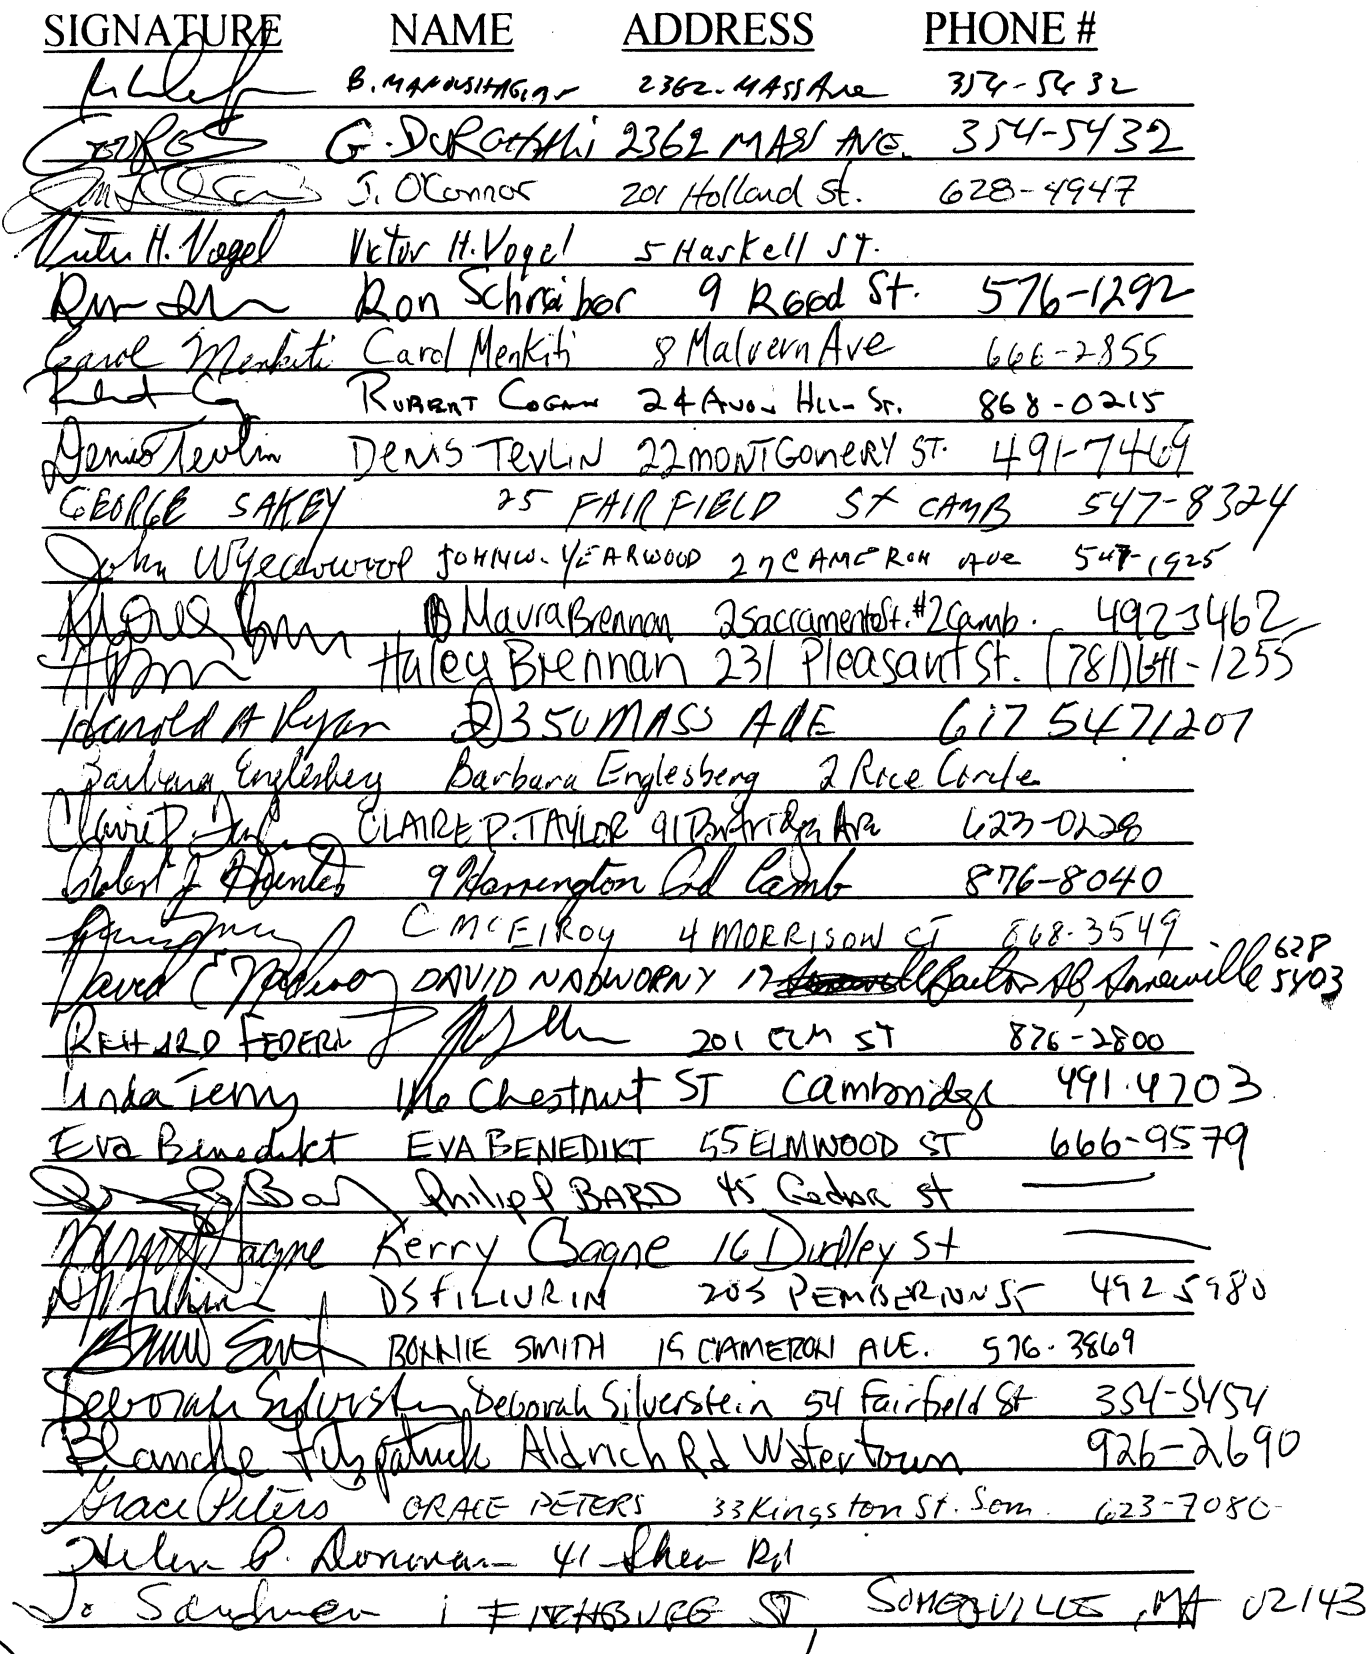 SIGNATURE NAME ADDRESS PHONE #
B. 2362 - MASS Ave 354-5432
GEORGES G. 2362 MASS AVE. 354-5432
J. O'Connor 201 Holland St. 628-4947
Victor H. Vogel Victor H. Vogel 5 Haskell St.
Ron Schreiber 9 Reed St. 576-1292
Carol Menkiti Carol Menkiti 8 Malvern Ave 666-2855
Robert Cogan 24 Avon Hill St. 868-0215
Denis Tevlin DENIS TEVLIN 22 MONTGOMERY ST. 491-7469
GEORGE SAKEY 25 FAIRFIELD ST CAMB 547-8324
John W Yearwood JOHN W. YEARWOOD 27 CAMERON Ave 547-1925
Maura Brennan 2 Sacramento St. #2 Camb. 492 3462
Haley Brennan 231 Pleasant St. (781) 641-1255
Harold A Ryan 2350 MASS AVE 617 5471207
Barbara Englesberg Barbara Englesberg 2 Rice Circle
Claire P. Taylor CLAIRE P. TAYLOR 91 Partridge Ave 623-0228
Robert J. 9 Harrington Rd Camb 876-8040
C MCELROY 4 MORRISON CT 868-3549
David E Nadworny DAVID NADWORNY 17 St, Somerville 628 5403
RICHARD FEDER 201 ELM ST 876-2800
Linda Terry 116 Chestnut ST Cambridge 491.4703
Eva Benedikt EVA BENEDIKT 55 ELMWOOD ST 666-9579
Philip P BARD 45 Cedar St
Kerry Gagne Kerry Gagne 16 Dudley St
203 PEMBERTON ST 492 5980
Bonnie Smith BONNIE SMITH 15 CAMERON AVE. 576-3869
Deborah Silverstein Deborah Silverstein 54 Fairfield St 354-5454
Blanche Fitzpatrick Aldrich Rd Watertown 926-2690
Grace Peters GRACE PETERS 33 Kingston St. Som. 623-7080
Helen P. Donovan 41 Shea Rd
Jo Sandman 1 FITCHBURG ST, SOMERVILLE, MA 02143